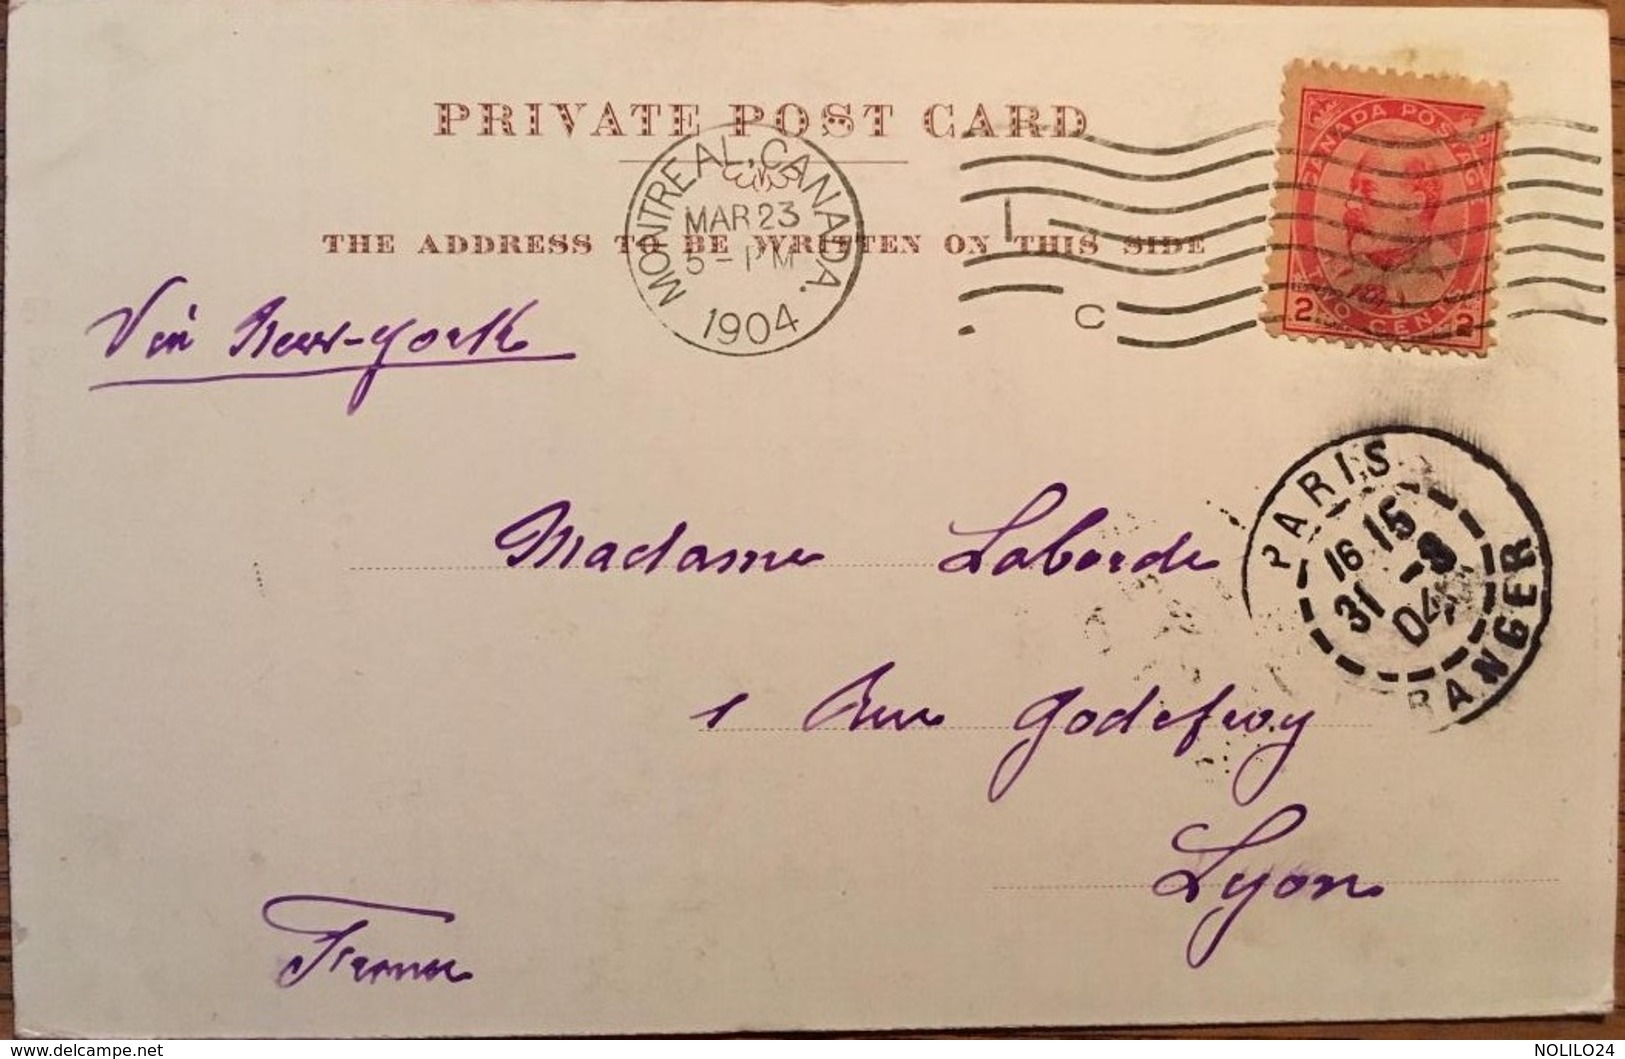 PRIVATE POST CARD
MONTREAL, CANADA.
MAR 23
5 - PM
1904
I
C
CANADA POSTAGE
2 TWO CENTS 2
THE ADDRESS TO BE WRITTEN ON THIS SIDE
Via New-York
PARIS
16 15
31 -3
04
ETRANGER
Madame Laborde
1 Rue Godefroy
Lyon
France
delcampe.net
NOLILO24